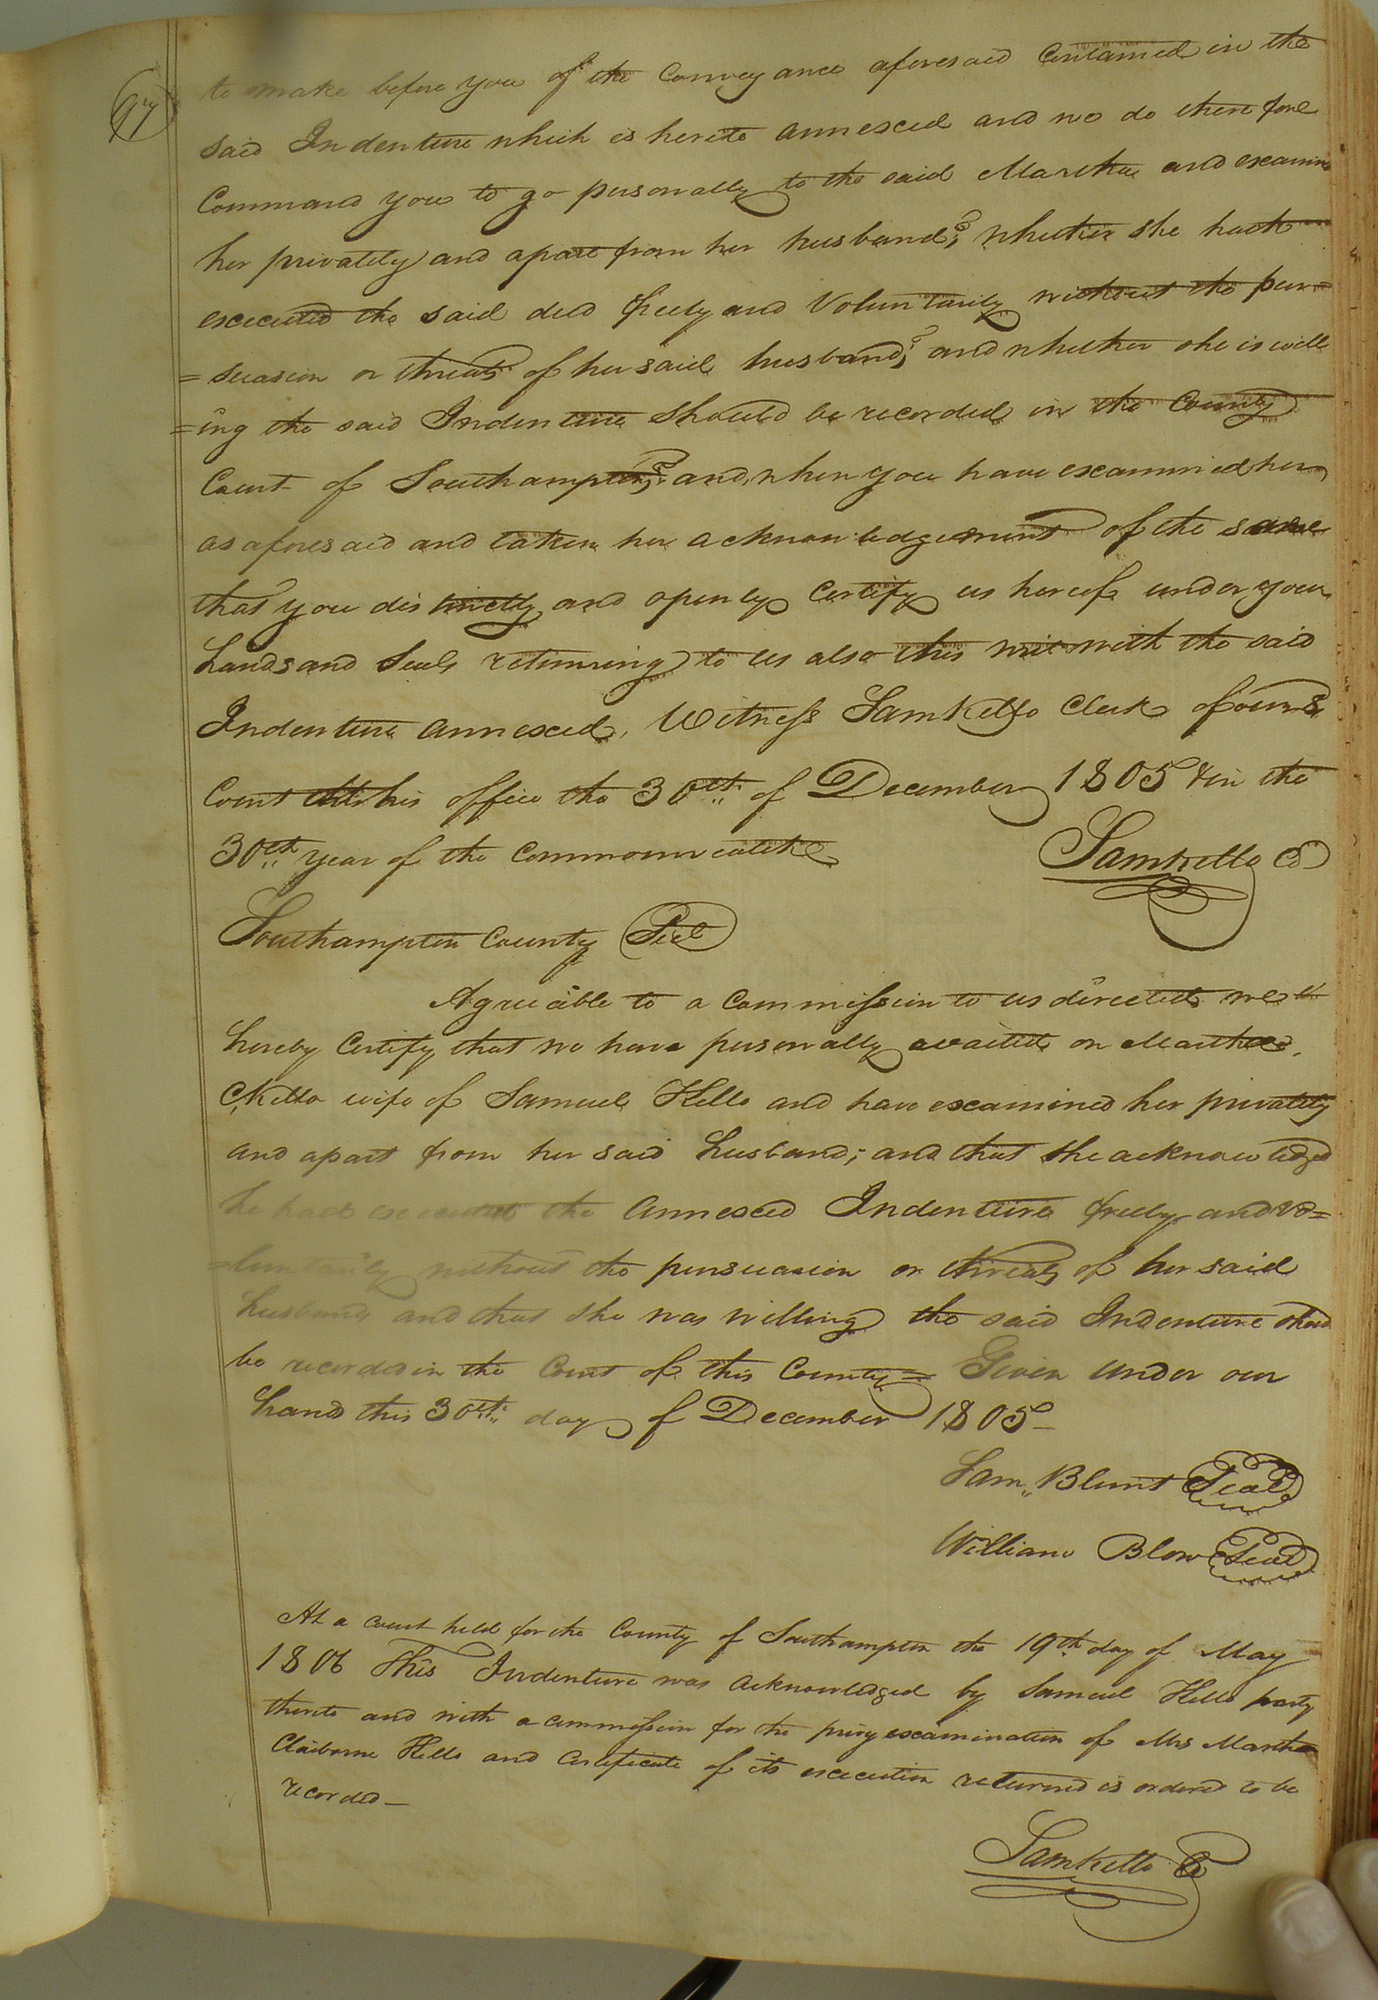 97
to make before you of the Conveyance aforesaid Contained in the
said Indenture which is hereto annexed and we do therefore
Command you to go personally to the said Martha and examine
her privately and apart from her husband, whether she hath
executed the said deed freely and Voluntarily without the per=
=suasion or threats of her said husband, and whether she is will
=ing the said Indenture should be recorded in the County
Court of Southampton, and when you have examined her
as aforesaid and taken her acknowledgement of the same
that you distinctly and openly Certify us hereof under your
hands and seals returning to us also this writ with the said
Indenture annexed, Witness Saml Kello Clerk of our sd
Court at his office the 30th of December 1805 & in the
30th year of the Commonwealth
Saml Kello CC
Southampton County Sct
Agreeable to a Commission to us directed we
hereby Certify that we have personally waited on Martha
C Kello wife of Samuel Kello and have examined her privately
and apart from her said husband; and that she acknowledged
he had executed the annexed Indenture freely and vo=
=luntarily without the persuasion or threats of her said
husband and that she was willing the said Indenture shoud
be recorded in the Court of this County = Given under our
hand this 30th day of December 1805 -
Sam Blunt Seal
William Blow Seal
At a Court held for the County of Southampton the 19th day of May
1806 This Indenture was acknowledged by Samuel Kello party
thereto and with a commission for the privy examination of Mrs Martha
Claiborne Kello and Certificate of its execution returned is ordered to be
recorded -
Saml Kello CC